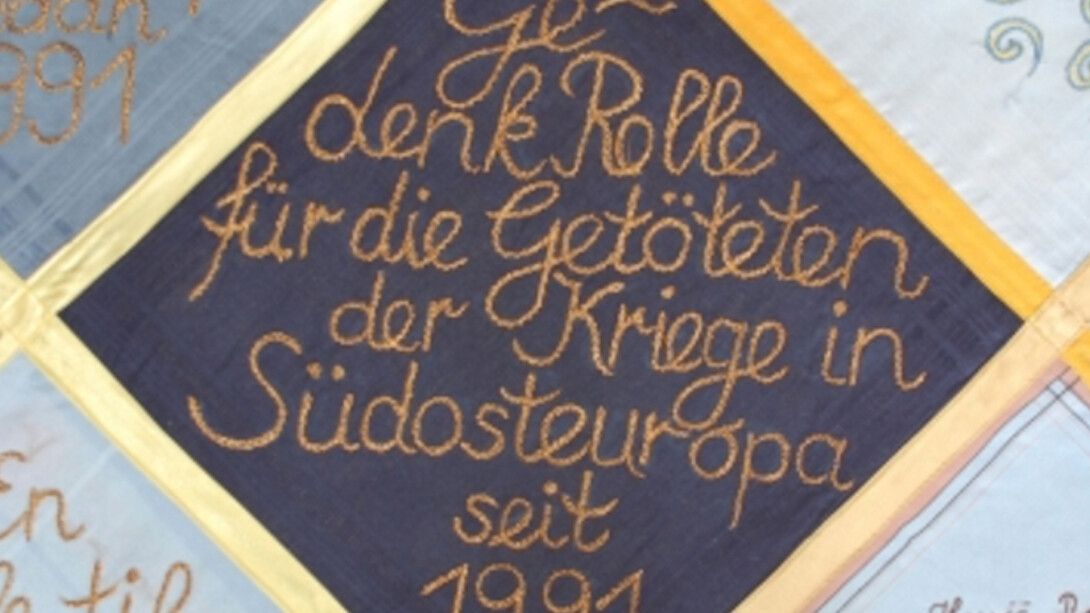 Ge-
denk Rolle
für die Getöteten
der Kriege in
Südosteuropa
seit
1991
1991